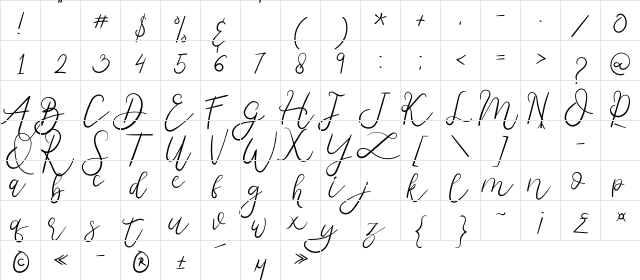 ! " # $ % & ' ( ) * + , - . / 0
1 2 3 4 5 6 7 8 9 : ; < = > ? @
A B C D E F G H I J K L M N O P
Q R S T U V W X Y Z [ \ ] ^ _ -
a b c d e f g h i j k l m n o p
q r s t u v w x y z { } ~ ¡ £ ¤
© « - ® ¯ ± µ »